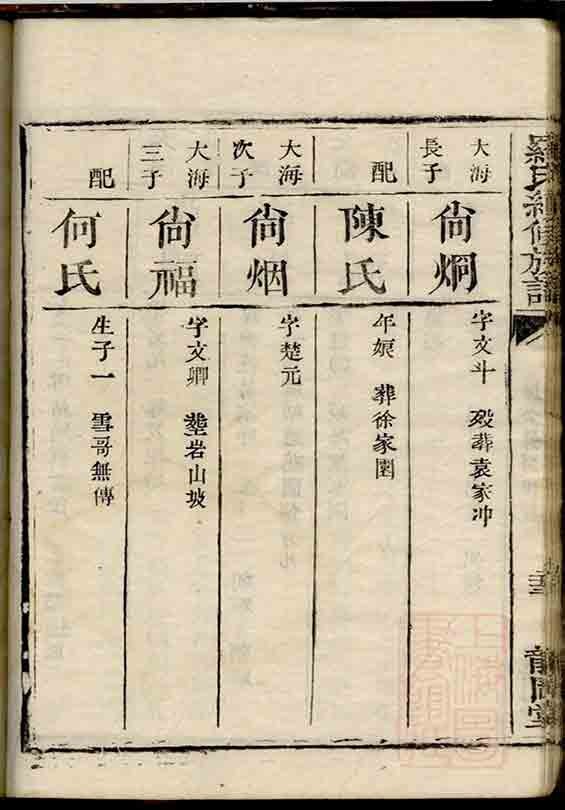 羅氏續修族譜
大海長子
尙炯
字文斗 歿葬袁家冲
配
陳氏
年娘 葬徐家園
大海次子
尙烟
字楚元
大海三子
尙福
字文卿 塟岩山坡
配
何氏
生子一 雪哥無傳